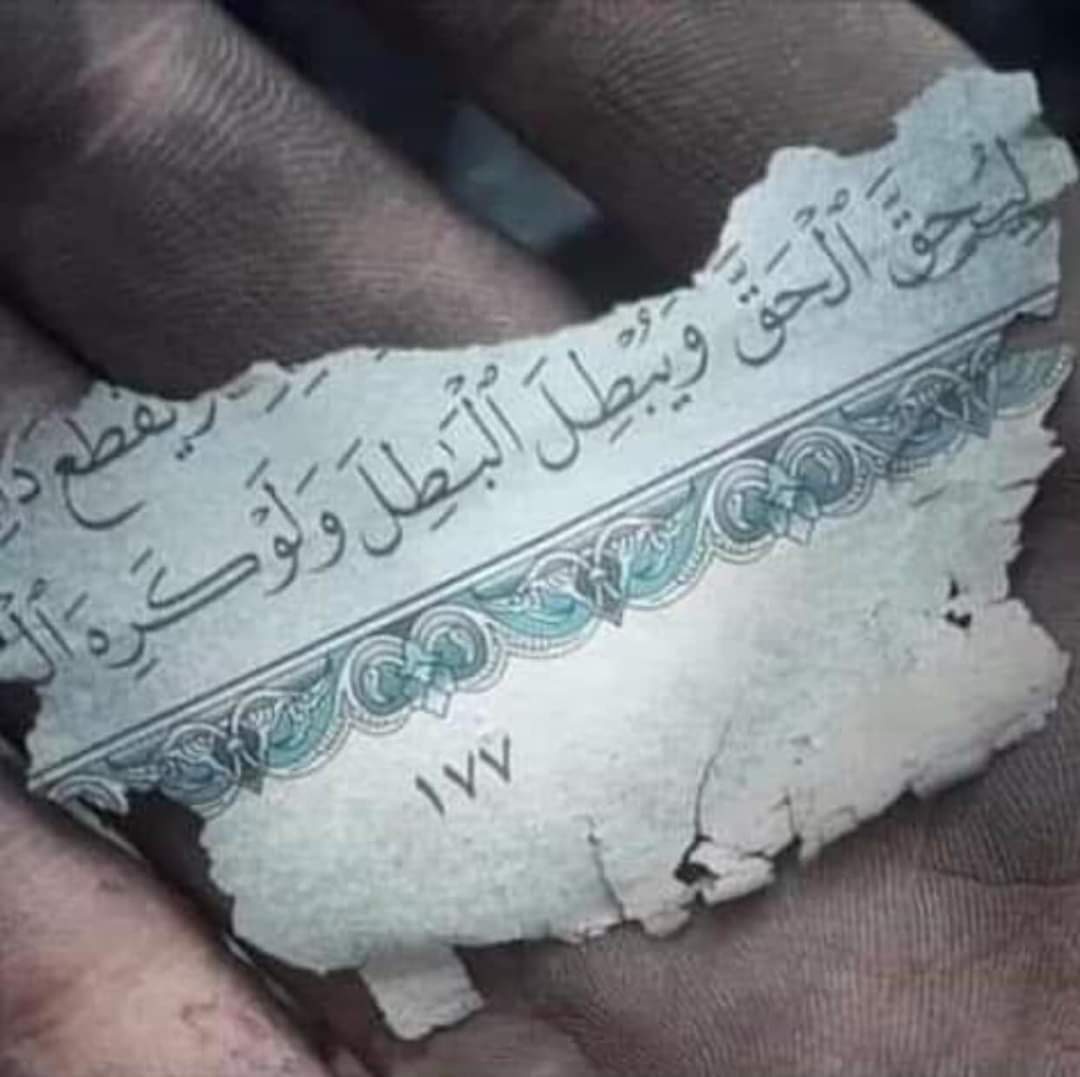 ويقطع دا
لِيُحِقَّ ٱلْحَقَّ وَيُبْطِلَ ٱلْبَٰطِلَ وَلَوْ كَرِهَ ٱلْ
١٧٧